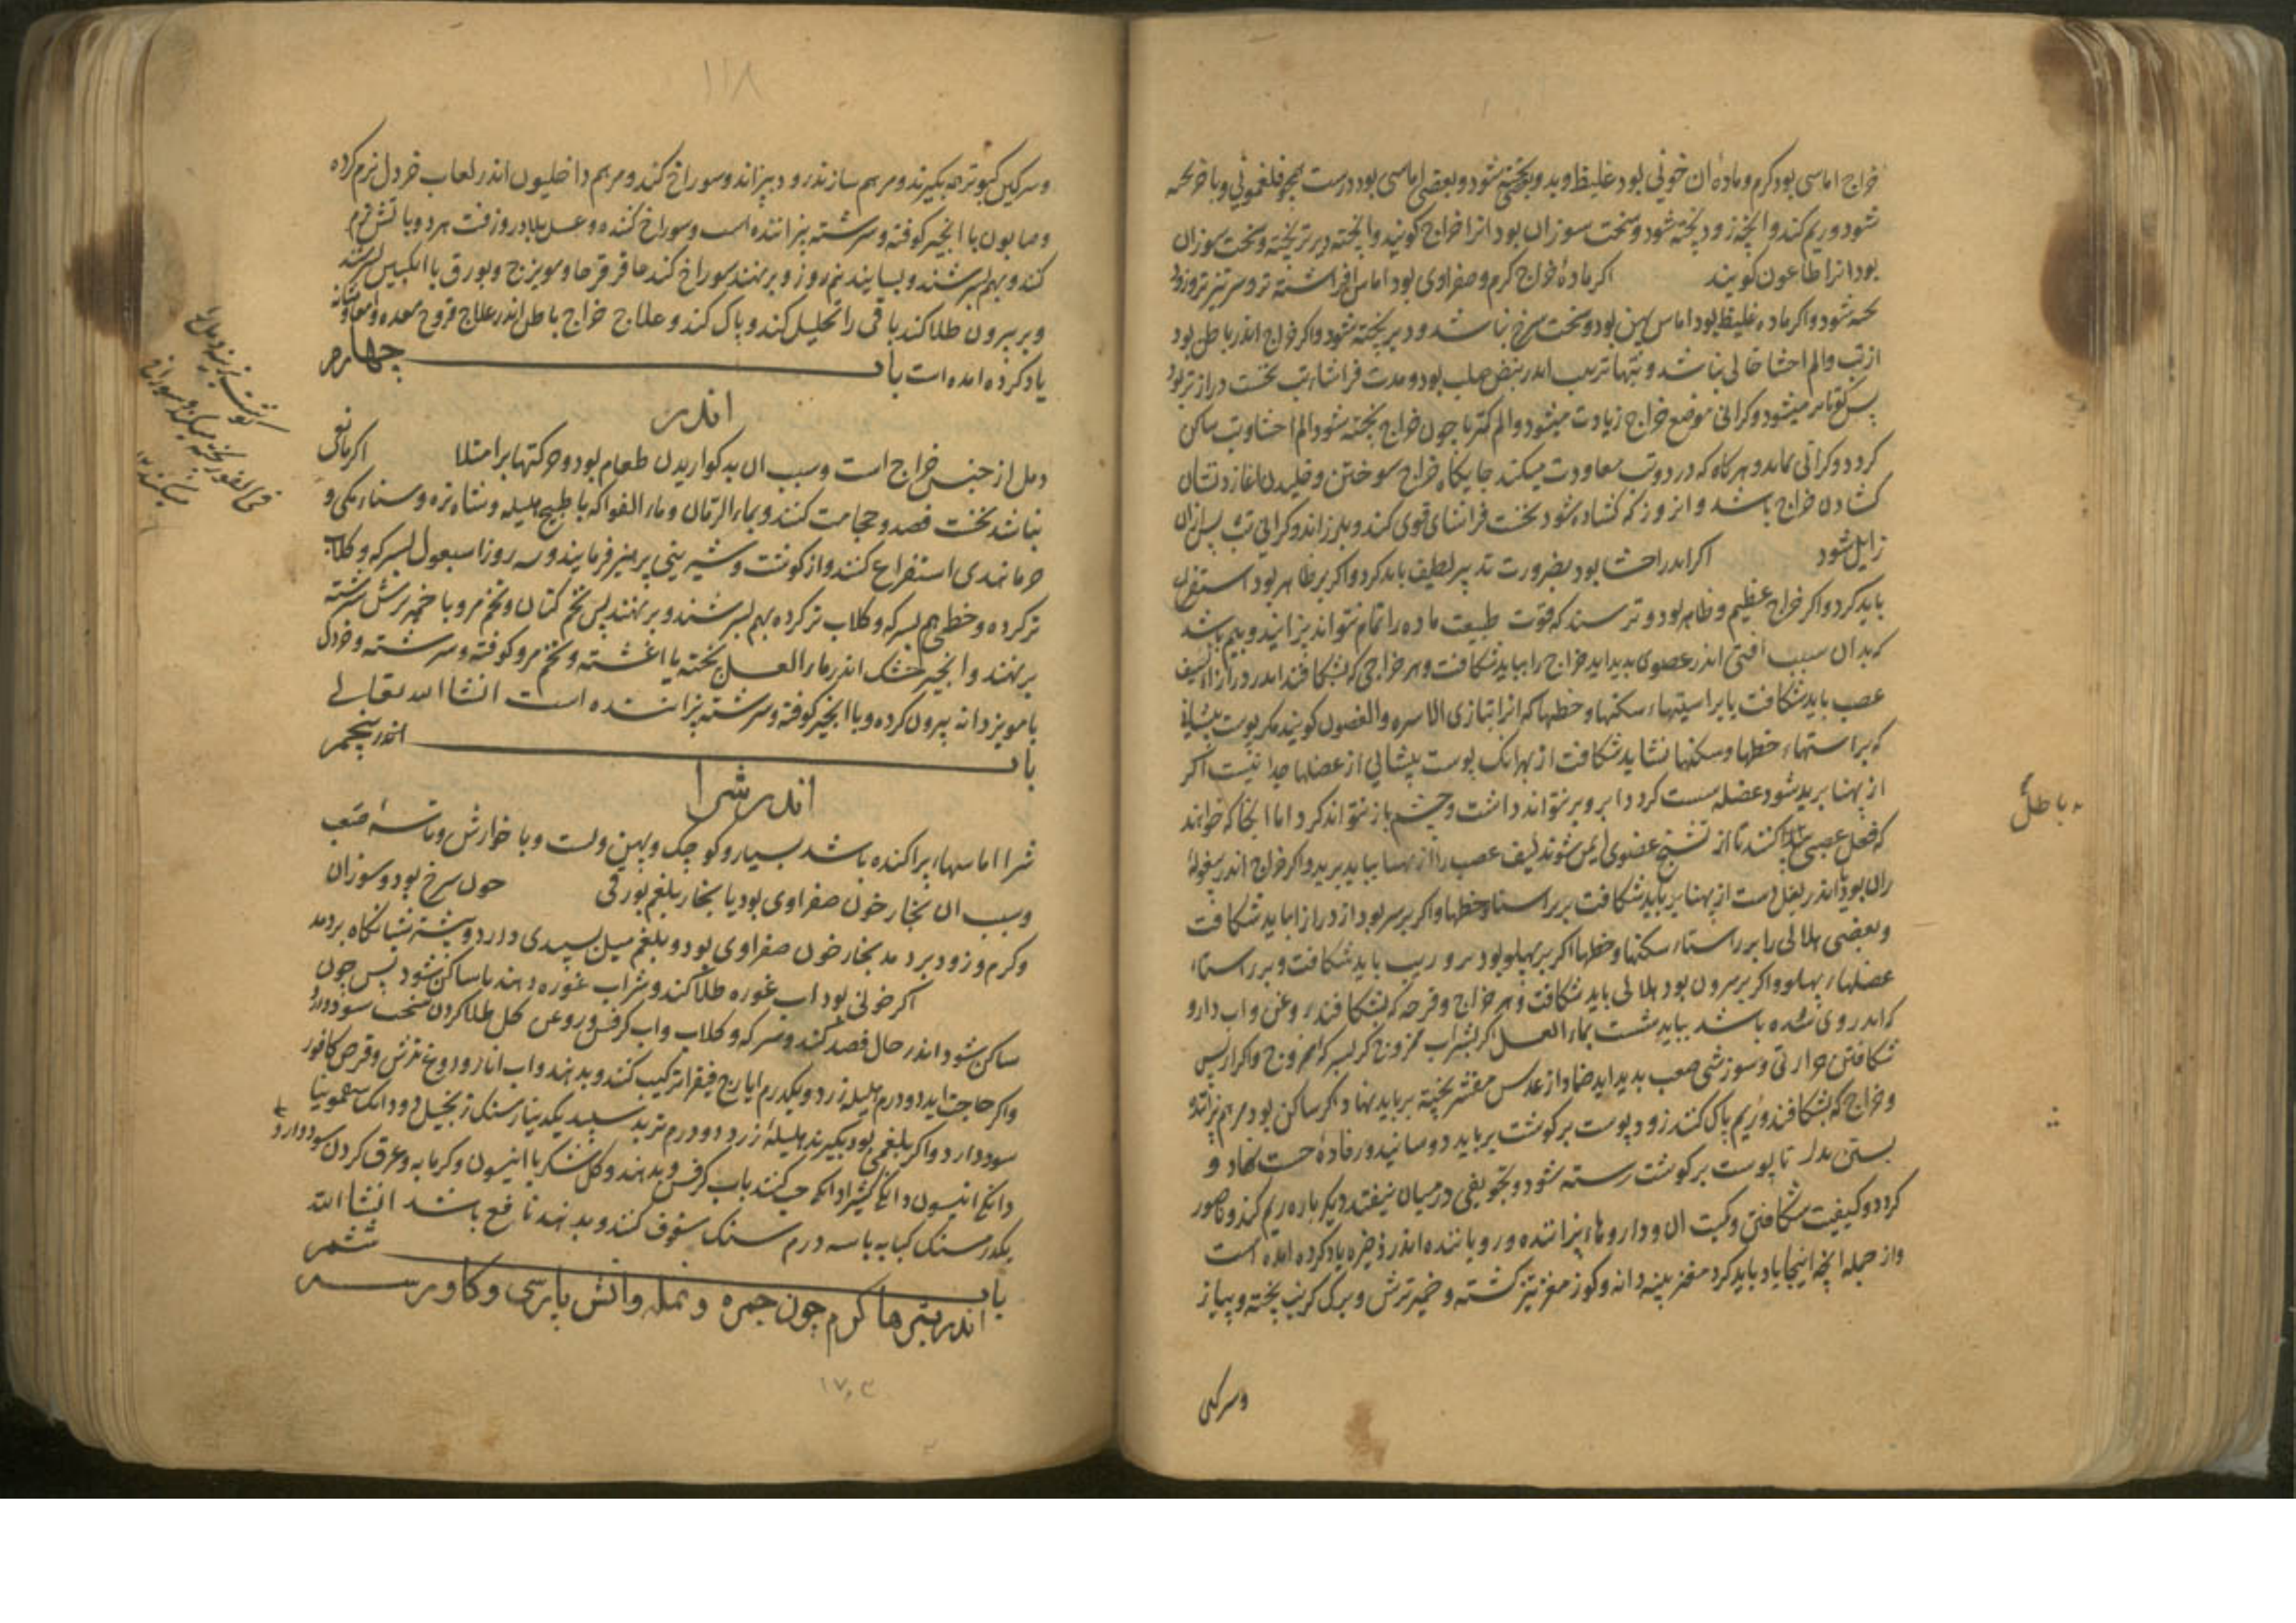 خراج اماسی بود کرم و ماده ان خونی بود غلیظ و بد و بعضی پخته شود و بعضی اماسی بود درست همچو فلغمونی و باخر پخته
شود و ریم کند و انچه زود پخته شود و سخت سوزان بود انرا خراج کویند و انچه دیرتر پخته و سخت سوزان
بود انرا طاعون کویند اکر ماده خراج کرم و صفراوی بود اماس افراشته تر و سر تیز تر و زود
پخته شود و اکر ماده غلیظ بود اماس پهن بود و سخت سرخ نباشد و دیر پخته شود و اکر خراج اندر باطن بود
از تب و الم احشا خالی نباشد و تبها اندر نبض صلب بود و مدت فراشاء تب نخست درازتر بود
پس کوتاه میشود و کرانی موضع خراج زیادت میشود و الم کمتر تا چون خراج پخته شود الم احشا و تب ساکن
کردد و کرانی بماند و هرکاه که درد و تب معاودت میکند جایکاه خراج سوختن و خلیدن اغازد نشان
کشادن خراج باشد و انروز که کشاده شود نخست فراشای قوی کند و بلرزاند و کرانی تب پس ازان
زایل شود اکر اندر احشا بود بضرورت تدبیر لطیف باید کرد و اکر بر ظاهر بود استفراغ
باید کرد و اکر خراج عظیم و ظاهر بود و ترسند که قوت طبیعت ماده را تمام نتواند پزانید و بیم باشد
که بدان سبب افتی اندر عضوی پدید اید خراج را بباید شکافت و هر خراجی که بشکافند اندر درازا لیف
عصب باید شکافت یا براستهاء سکنها و خطها که انرا بتازی الاسره و الغضون کویند مکر پوست پیشانی
که براستهاء خطها و سکنها نشاید شکافت از بهرانک پوست پیشانی از عضلها جدا نیست اکر
از پهنا برید شود عضله سست کردد ابرو برنتواند داشت و چشم باز نتواند کرد اما انجا که خواهند
که فعل عصبی باطل کنند تا از تشنج عضوی ایمن شوند لیف عصب را از پهنا بباید برید و اکر خراج اندر بیغوله
ران بود یا اندر بغل دست از پهنا باید شکافت بر راستاء خطها و اکر بر سر بود از درازا باید شکافت
و بعضی هلالی را بر راستاء سکنها و خطها اکر بر پهلو بود بر وریب باید شکافت و بر راستاء
عضلهاء پهلو و اکر بر سرون بود هلالی باید شکافت و هر خراج و قرحه که بشکافند روغن و اب دارو
که اندر وی شده باشد بباید شست بماء العسل کر بشراب ممزوج کر بسرکه ممزوج و اکر از پس
شکافتن حرارتی و سوزشی صعب پدید اید ضماد از عدس مقشر پخته بر باید نهاد اکر ساکن بود مرهم
و خراج که بشکافند و ریم پاک کنند زود پوست بر کوشت بر باید دوسانید و رفاده نهاد و
بستن بدل تا پوست بر کوشت رسته شود و تجویفی در میان نیفتد دیکرباره ریم کند و ناصور
کردد و کیفیت شکافتن و کمیت ان و داروهاء پزاننده و رویاننده اندر ذخیره یاد کرده امده است
و از جمله انچه اینجا یاد باید کرد مغز پنبه دانه و کوز مغز تیز کشته و خمیر ترش و برک کرنب پخته و پیاز
وسرکین
باطل
وسرکین کبوتر همه بکیرند و مرهم سازند زود بپزاند و سوراخ کند و مرهم داخلیون اندر لعاب خردل نرم کرده
و صابون با انجیر کوفته و سرشته پزاننده است و سوراخ کننده و عسل بلادر و زفت هر دو باتش نرم
کنند و بهم بسرشند و بسایند نیم روز و برنهند سوراخ کند عاقرقرحا و مویزج و بورق با انکبین بسرشند
و بر بیرون طلا کنند باقی را تحلیل کند و پاک کند و علاج خراج باطن اندر علاج قروح معده و امعا و مثانه
یاد کرده امده است باب چهارم
اندر
دمل از جنس خراج است و سبب ان بد کواریدن طعام بود و حرکتها بر امتلا اکر مانعی
نباشد نخست فصد و حجامت کنند و بماء الرمان و ماء الفواکه یا طبیخ هلیله و شاه تره و سناء مکی و
خرما هندی استفراغ کنند و از کوشت و شیرینی پرهیز فرمایند و سه روز اسبغول بسرکه و کلاب
تر کرده و خطمی هم بسرکه و کلاب تر کرده بهم بسرشند و برنهند پس تخم کتان و تخم مرو با خمیر ترش سرشته
برنهند و انجیر خشک اندر ماء العسل پخته یا اغشته و تخم مرو کوفته و سرشته و خردل
با مویز دانه بیرون کرده و با انجیر کوفته و سرشته پزاننده است انشا الله تعالی
باب اندر پنجم
اندر شرا
شرا اماسهاء پراکنده باشد بسیار و کوچک و پهن و لت و با خارش و تاسه صعب
و سبب ان بخار خون صفراوی بود یا بخار بلغم بورقی چون سرخ بود و سوزان
و کرم و زود بردمد بخار خون صفراوی بود و بلغم میل بسپیدی دارد و بیشتر شبانکاه بردمد
اکر خونی بود اب غوره طلا کنند و شراب غوره دهند تا ساکن شود پس چون
ساکن شود اندر حال فصد کنند و سرکه و کلاب و اب کرفس و روغن کل طلا کردن سخت سود دارد
واکر حاجت اید دو درم هلیله زرد و یکدرم ایارج فیقرا ترکیب کنند و بدهند و اب انار و دوغ ترش و قرص کافور
سود دارد و اکر بلغمی بود بکیرند هلیله زرد دو درم تربد سپید یکدینار سنک زنجبیل دو دانک سقمونیا
دانکی انیسون دانکی کثیرا دانکی حب کنند باب کرفس و بدهند و کل شکر با انیسون و کرمابه و عرق کردن سود دارد
یکدرمسنک کبابه با سه درم سنک سفوف کنند و بدهند نافع باشد انشا الله
باب ششم
اندر بثرها کرم چون جمره و نمله و اتش پارسی و کاورسه
۱۱۸